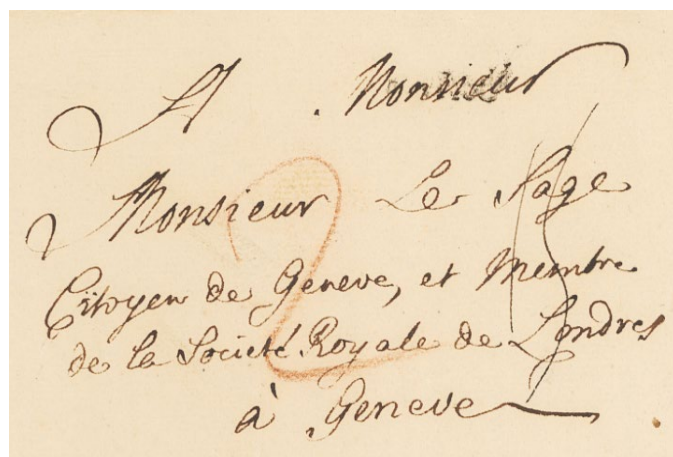 A Monsieur
Monsieur Le Sage
Citoyen de Geneve, et Membre
de la Societé Royale de Londres
à Geneve
2